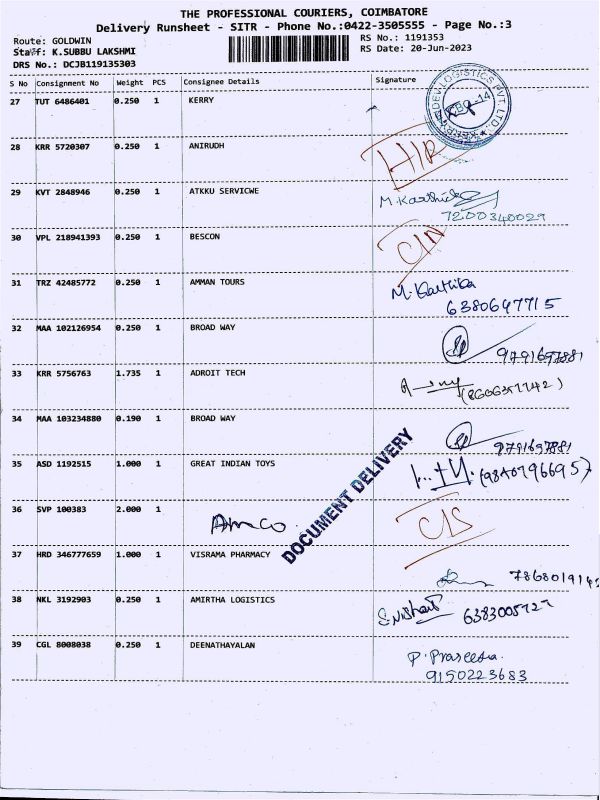 THE PROFESSIONAL COURIERS, COIMBATORE
Delivery Runsheet - SITR - Phone No.:0422-3505555 - Page No.:3
Route: GOLDWIN
RS No.: 1191353
Staff: K.SUBBU LAKSHMI
RS Date: 20-Jun-2023
DRS No.: DCJB119135303
S No Consignment No Weight PCS Consignee Details Signature
27 TUT 6486401 0.250 1 KERRY
28 KRR 5720307 0.250 1 ANIRUDH
29 KVT 2848946 0.250 1 ATKKU SERVICWE M.Karthick
7200340029
30 VPL 218941393 0.250 1 BESCON
31 TRZ 42485772 0.250 1 AMMAN TOURS M.Karthika
6380697715
32 MAA 102126954 0.250 1 BROAD WAY
9791697881
33 KRR 5756763 1.735 1 ADROIT TECH
34 MAA 103234880 0.190 1 BROAD WAY
9791697881
35 ASD 1192515 1.000 1 GREAT INDIAN TOYS (9840796695)
36 SVP 100383 2.000 1
Amco
DOCUMENT DELIVERY
37 HRD 346777659 1.000 1 VISRAMA PHARMACY
38 NKL 3192903 0.250 1 AMIRTHA LOGISTICS
39 CGL 8008038 0.250 1 DEENATHAYALAN
9150223683